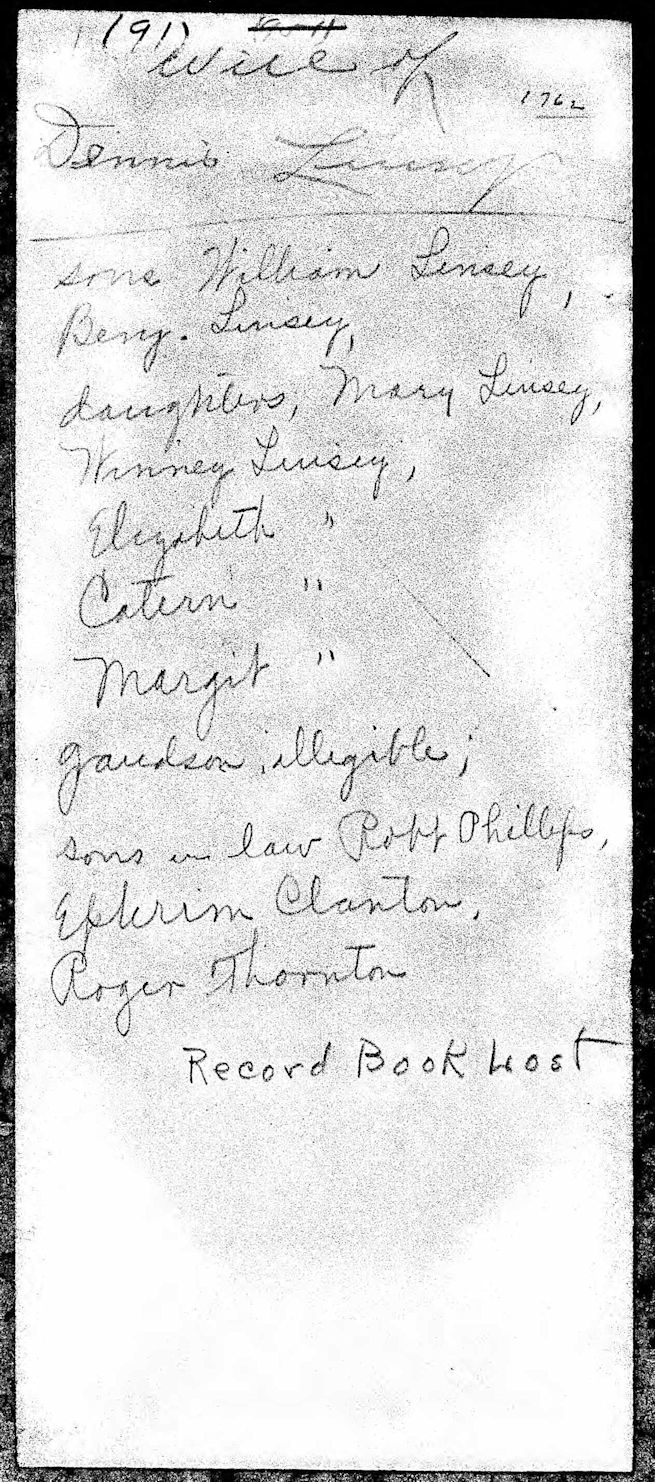 (91)
Will of
1762
Dennis Linsey
sons William Linsey,
Benj. Linsey,
daughters, Mary Linsey,
Winney Linsey,
Elizabeth "
Catern "
Margit "
grandson, illegible;
sons in law Robt Phillips,
Ephrim Clanton,
Roger Thornton
Record Book Lost